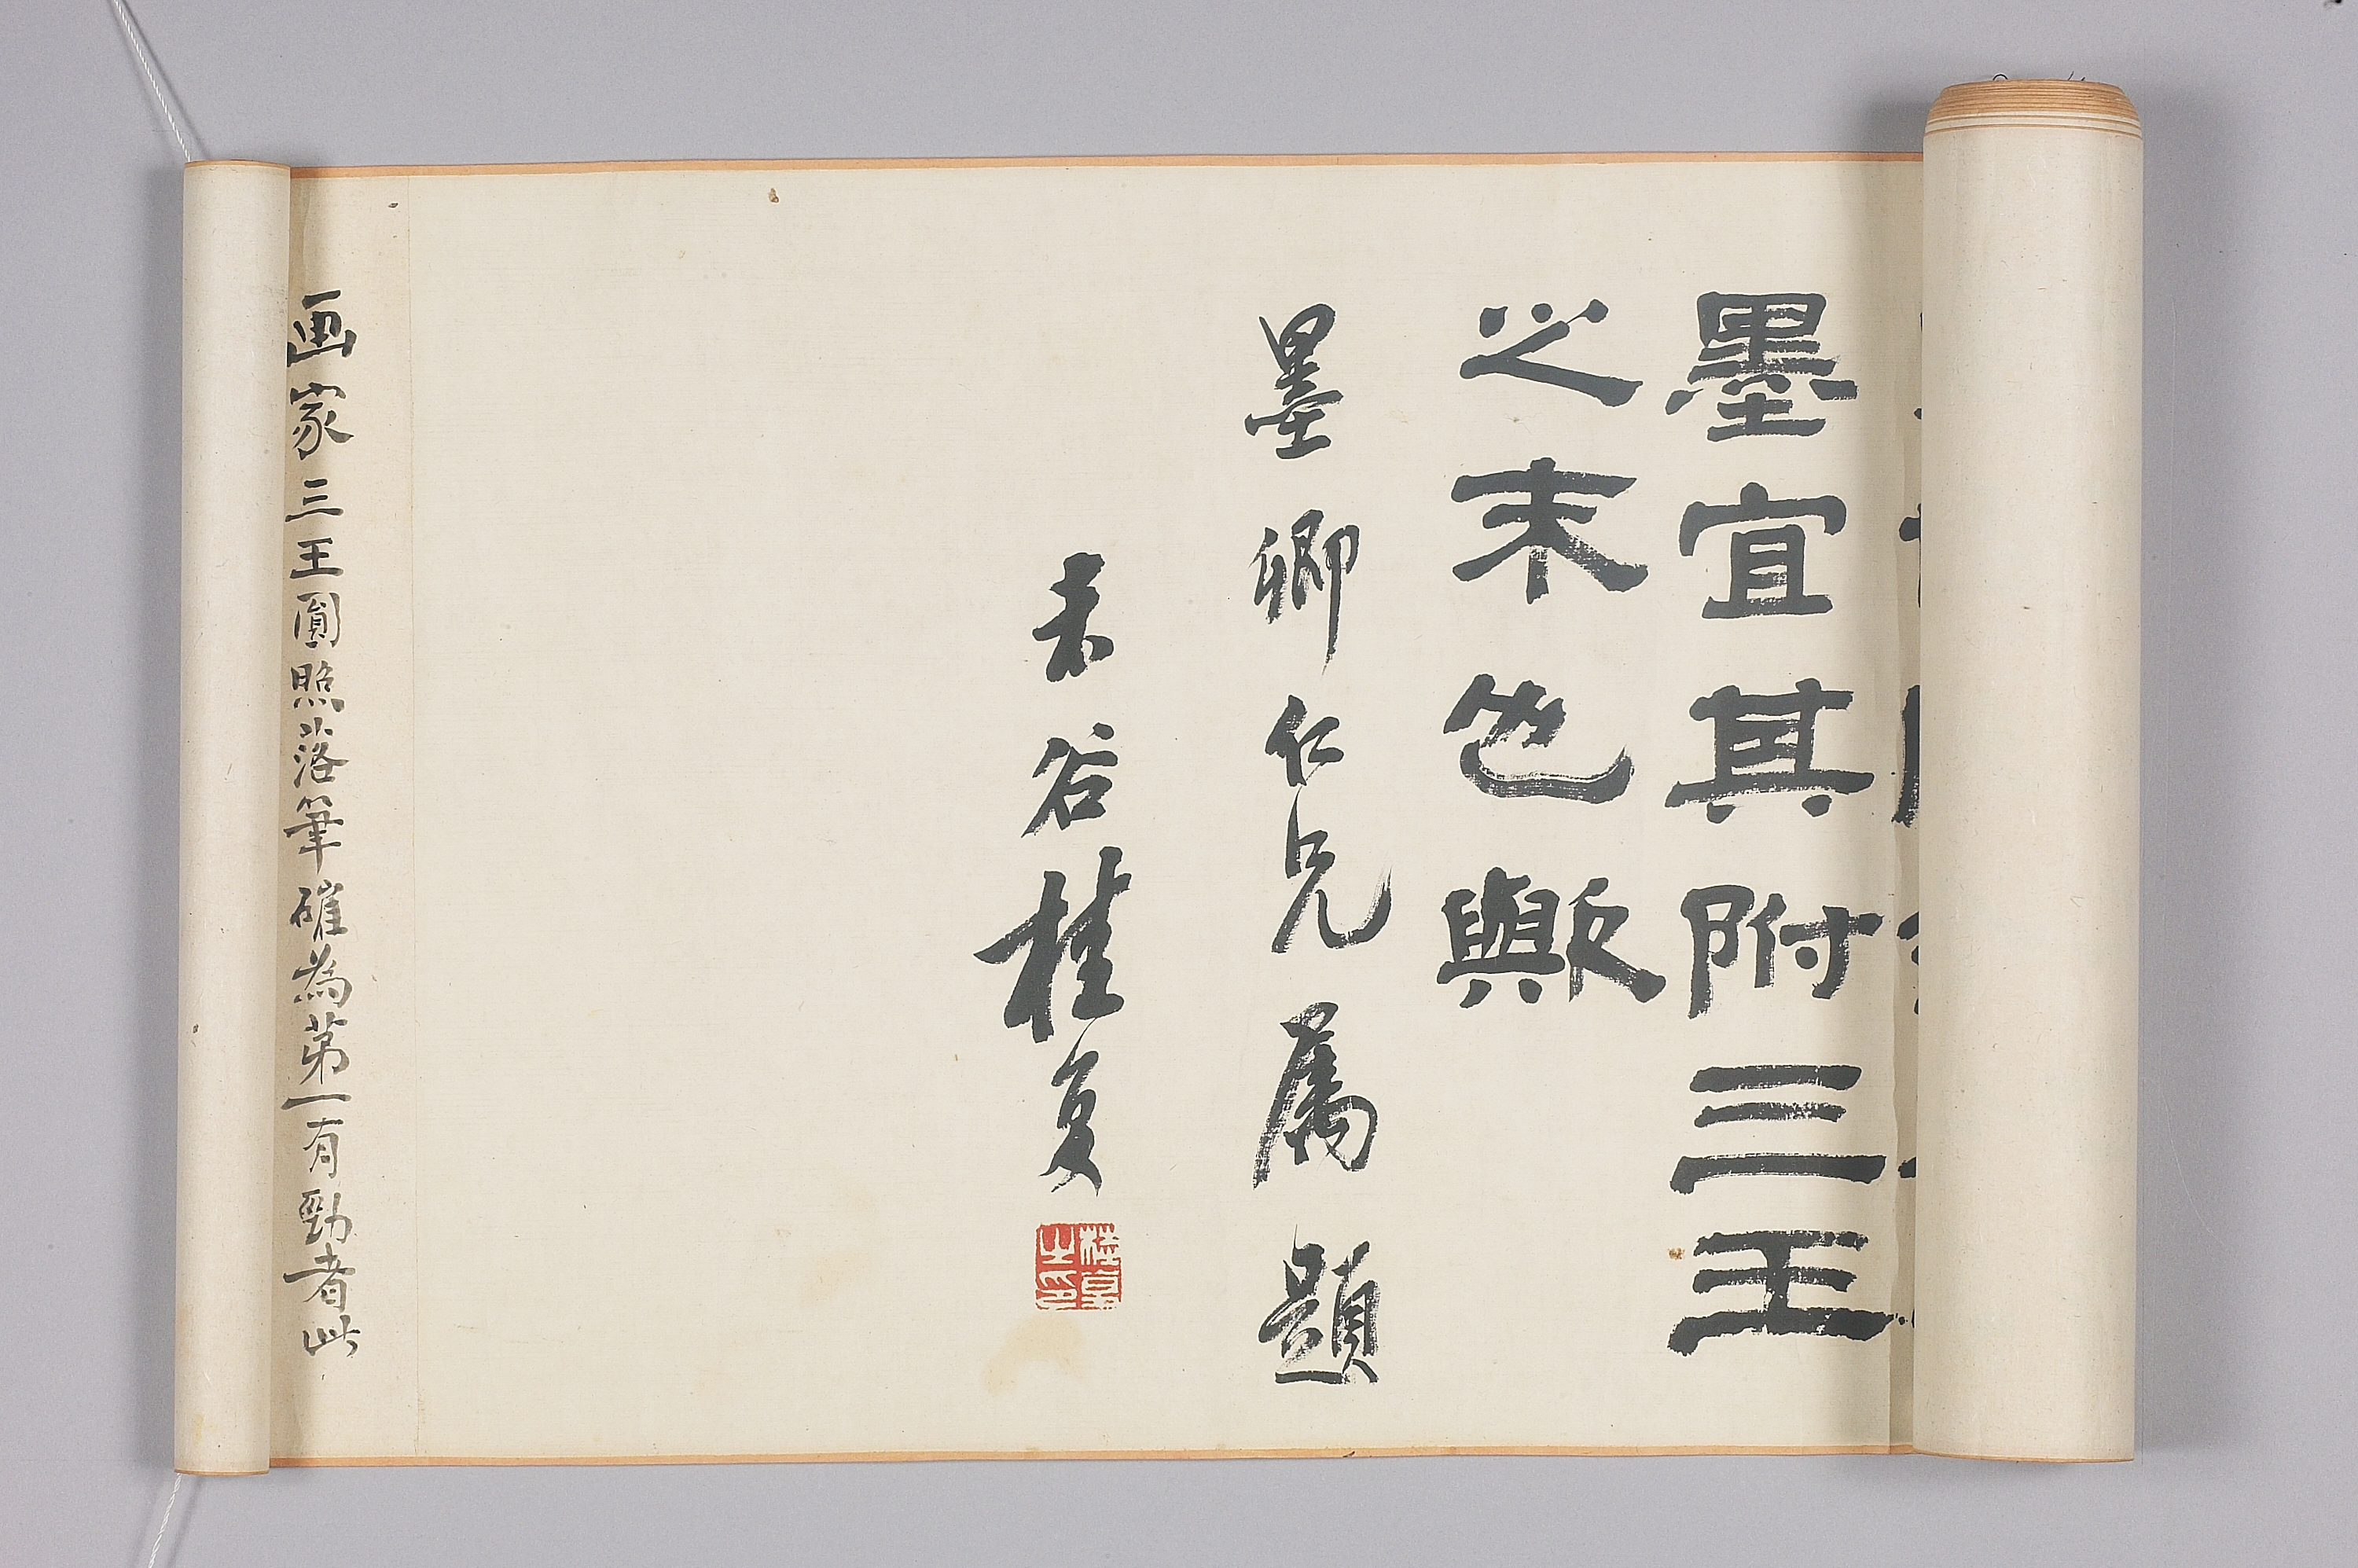 墨宜其附三王
之末也歟
墨卿仁兄屬題
未谷桂馥
桂馥之印
画家三王圓照落筆確為苐一有勁者此